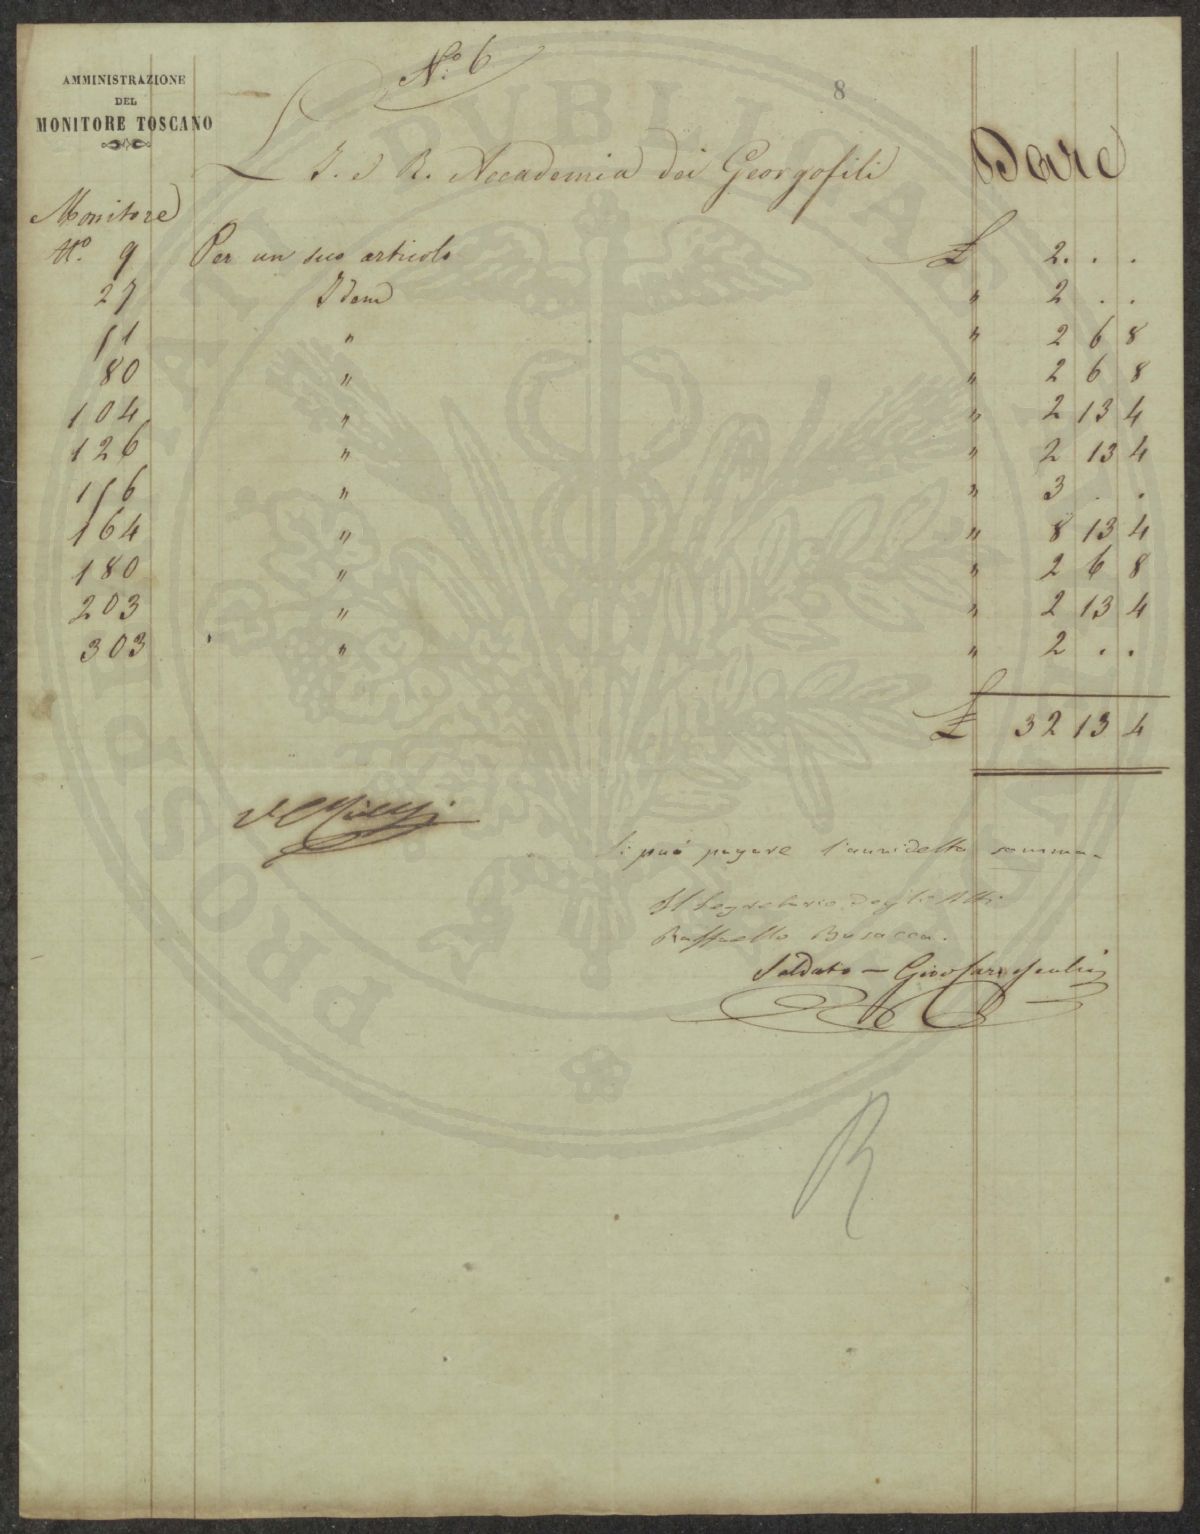 N.o 6
8
AMMINISTRAZIONE
DEL
MONITORE TOSCANO
L' I. e R. Accademia dei Georgofili Dare
Monitore
N.o 9 Per un suo articolo £ 2. . .
27 Idem " 2 . .
51 " " 2 6 8
80 " " 2 6 8
104 " " 2 13 4
126 " " 2 13 4
156 " " 3 . .
164 " " 8 13 4
180 " " 2 6 8
203 " " 2 13 4
303 " " 2 . .
£ 32 13 4
Si può pagare l'anzidetta somma
Il Segretario degli Atti
Raffaello Busacca.
Saldato —
R
PROSPERITATI PUBLICAE AUGENDAE